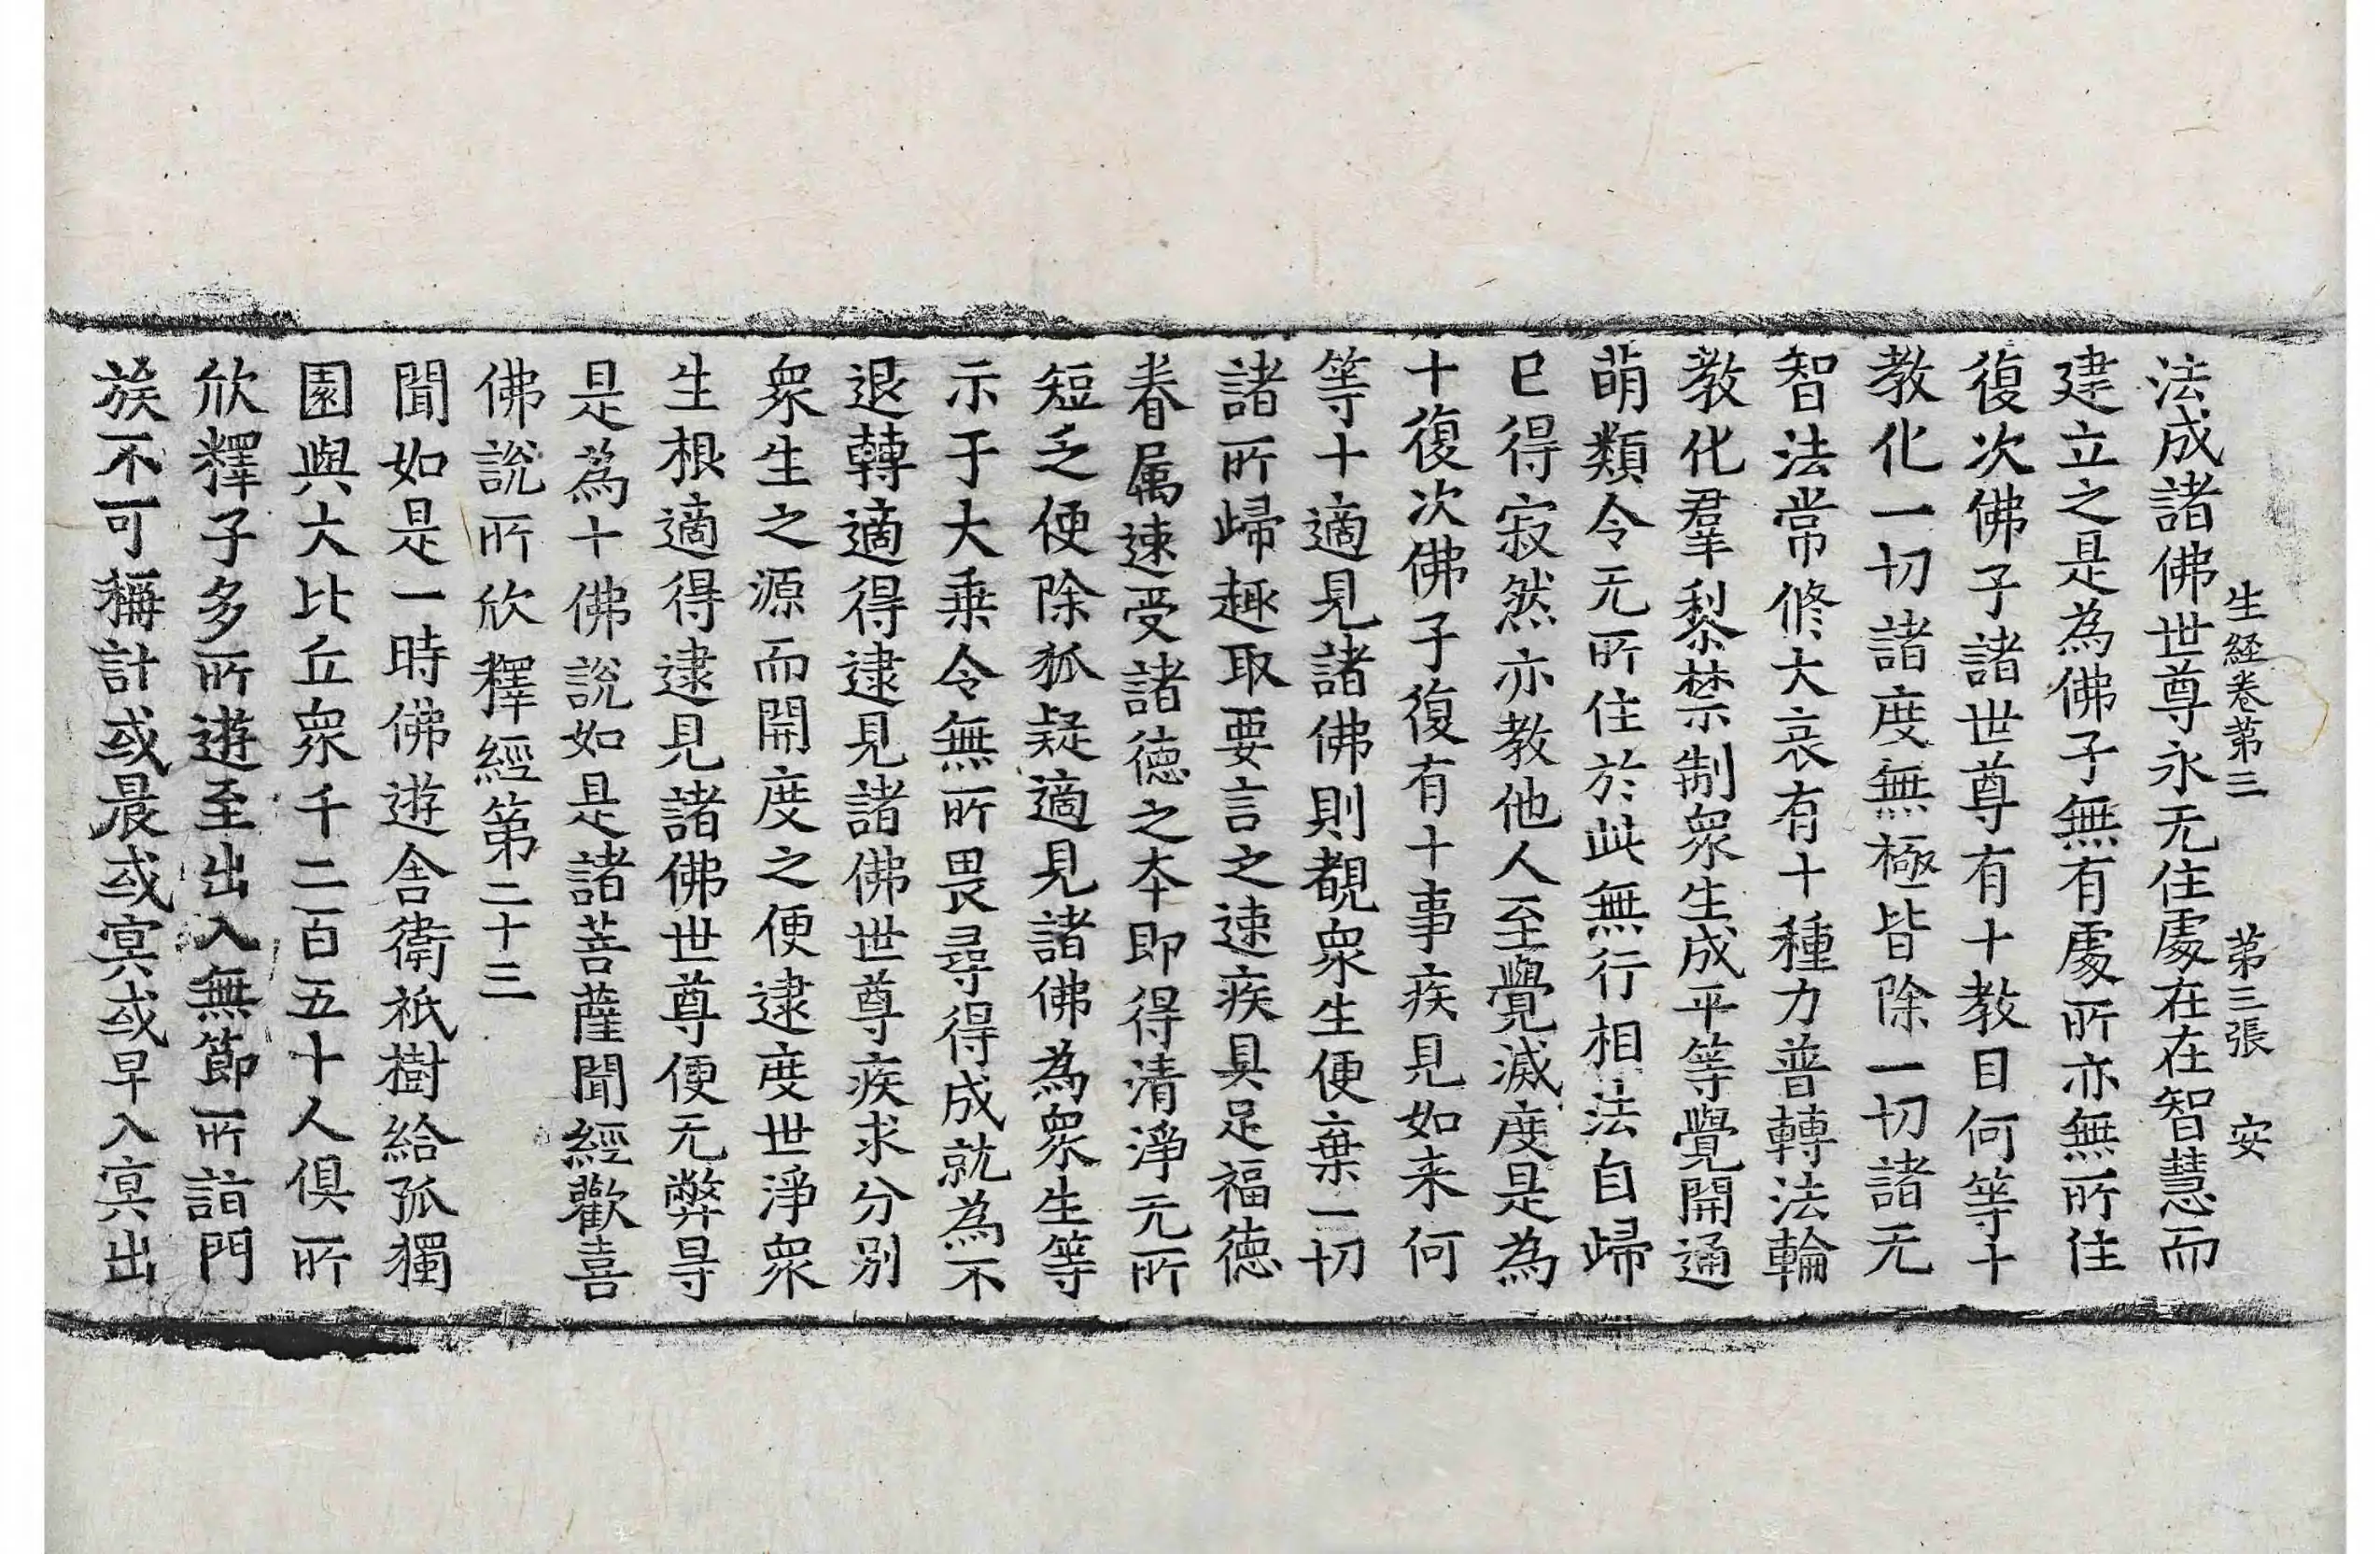 生経卷第三　第三張　安
法成諸佛世尊永无住處在在智慧而
建立之是為佛子無有處所亦無所住
復次佛子諸世尊有十教目何等十
教化一切諸度無極皆除一切諸无
智法常修大哀有十種力普轉法輪
教化羣黎禁制衆生成平等覺開通
萌類令无所住於此無行相法自歸
已得寂然亦教他人至覺滅度是為
十復次佛子復有十事疾見如来何
等十適見諸佛則覩衆生便棄一切
諸所歸趣取要言之速疾具足福德
眷属速受諸德之本即得清淨无所
短乏便除狐疑適見諸佛為衆生等
示于大乘令無所畏尋得成就為不
退轉適得逮見諸佛世尊疾求分别
衆生之源而開度之便逮度世淨衆
生根適得逮見諸佛世尊便无弊㝵
是為十佛說如是諸菩薩聞經歡喜
佛說所欣釋經第二十三
聞如是一時佛遊舍衛祇樹給孤獨
園與大比丘衆千二百五十人俱所
欣釋子多所遊至出入無節所詣門
族不可稱計或晨或㝠或早入㝠出